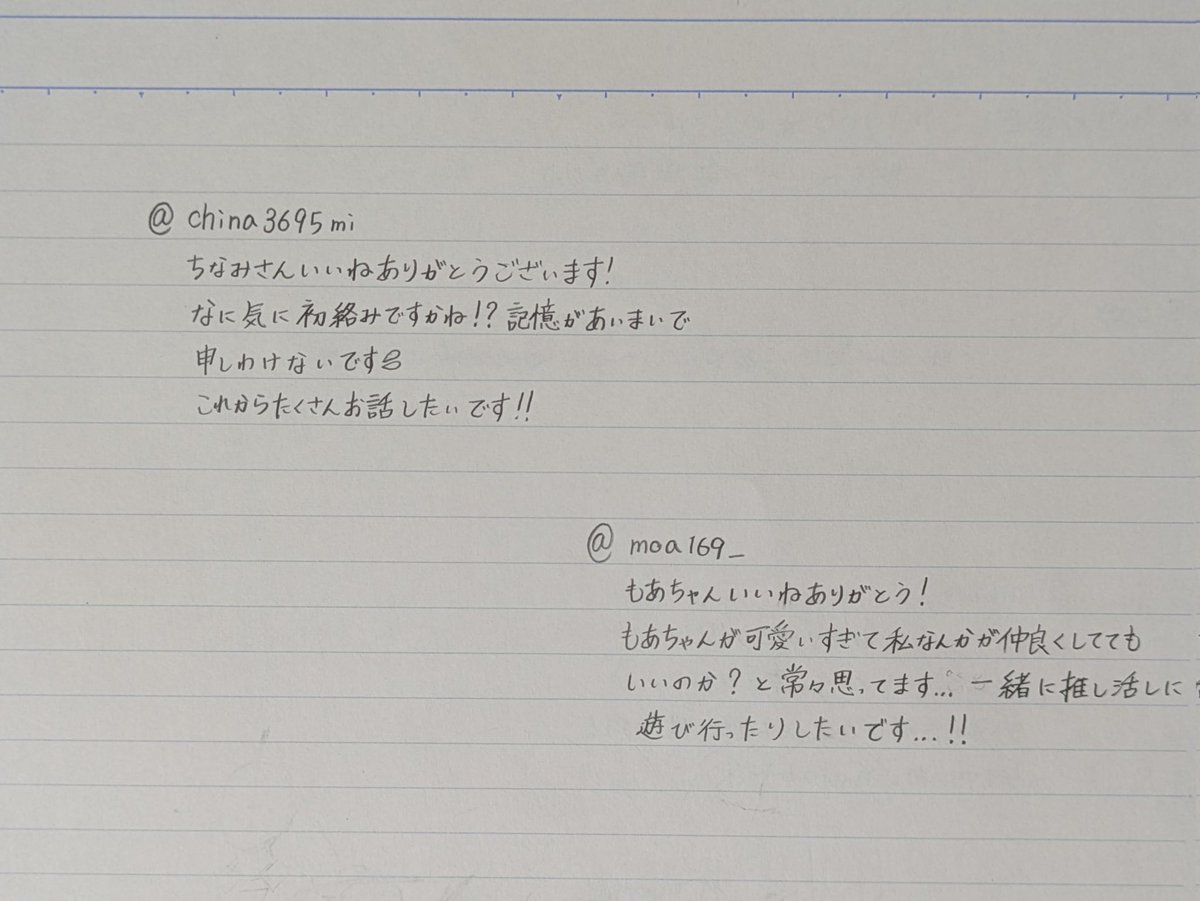 @ china3695mi
ちなみさんいいねありがとうございます!
なに気に初絡みですかね!? 記憶があいまいで
申しわけないです
これからたくさんお話したいです!!
@ moa169_
もあちゃんいいねありがとう!
もあちゃんが可愛いすぎて私なんかが仲良くしてても
いいのか?と常々思ってます... 一緒に推し活しに
遊び行ったりしたいです...!!